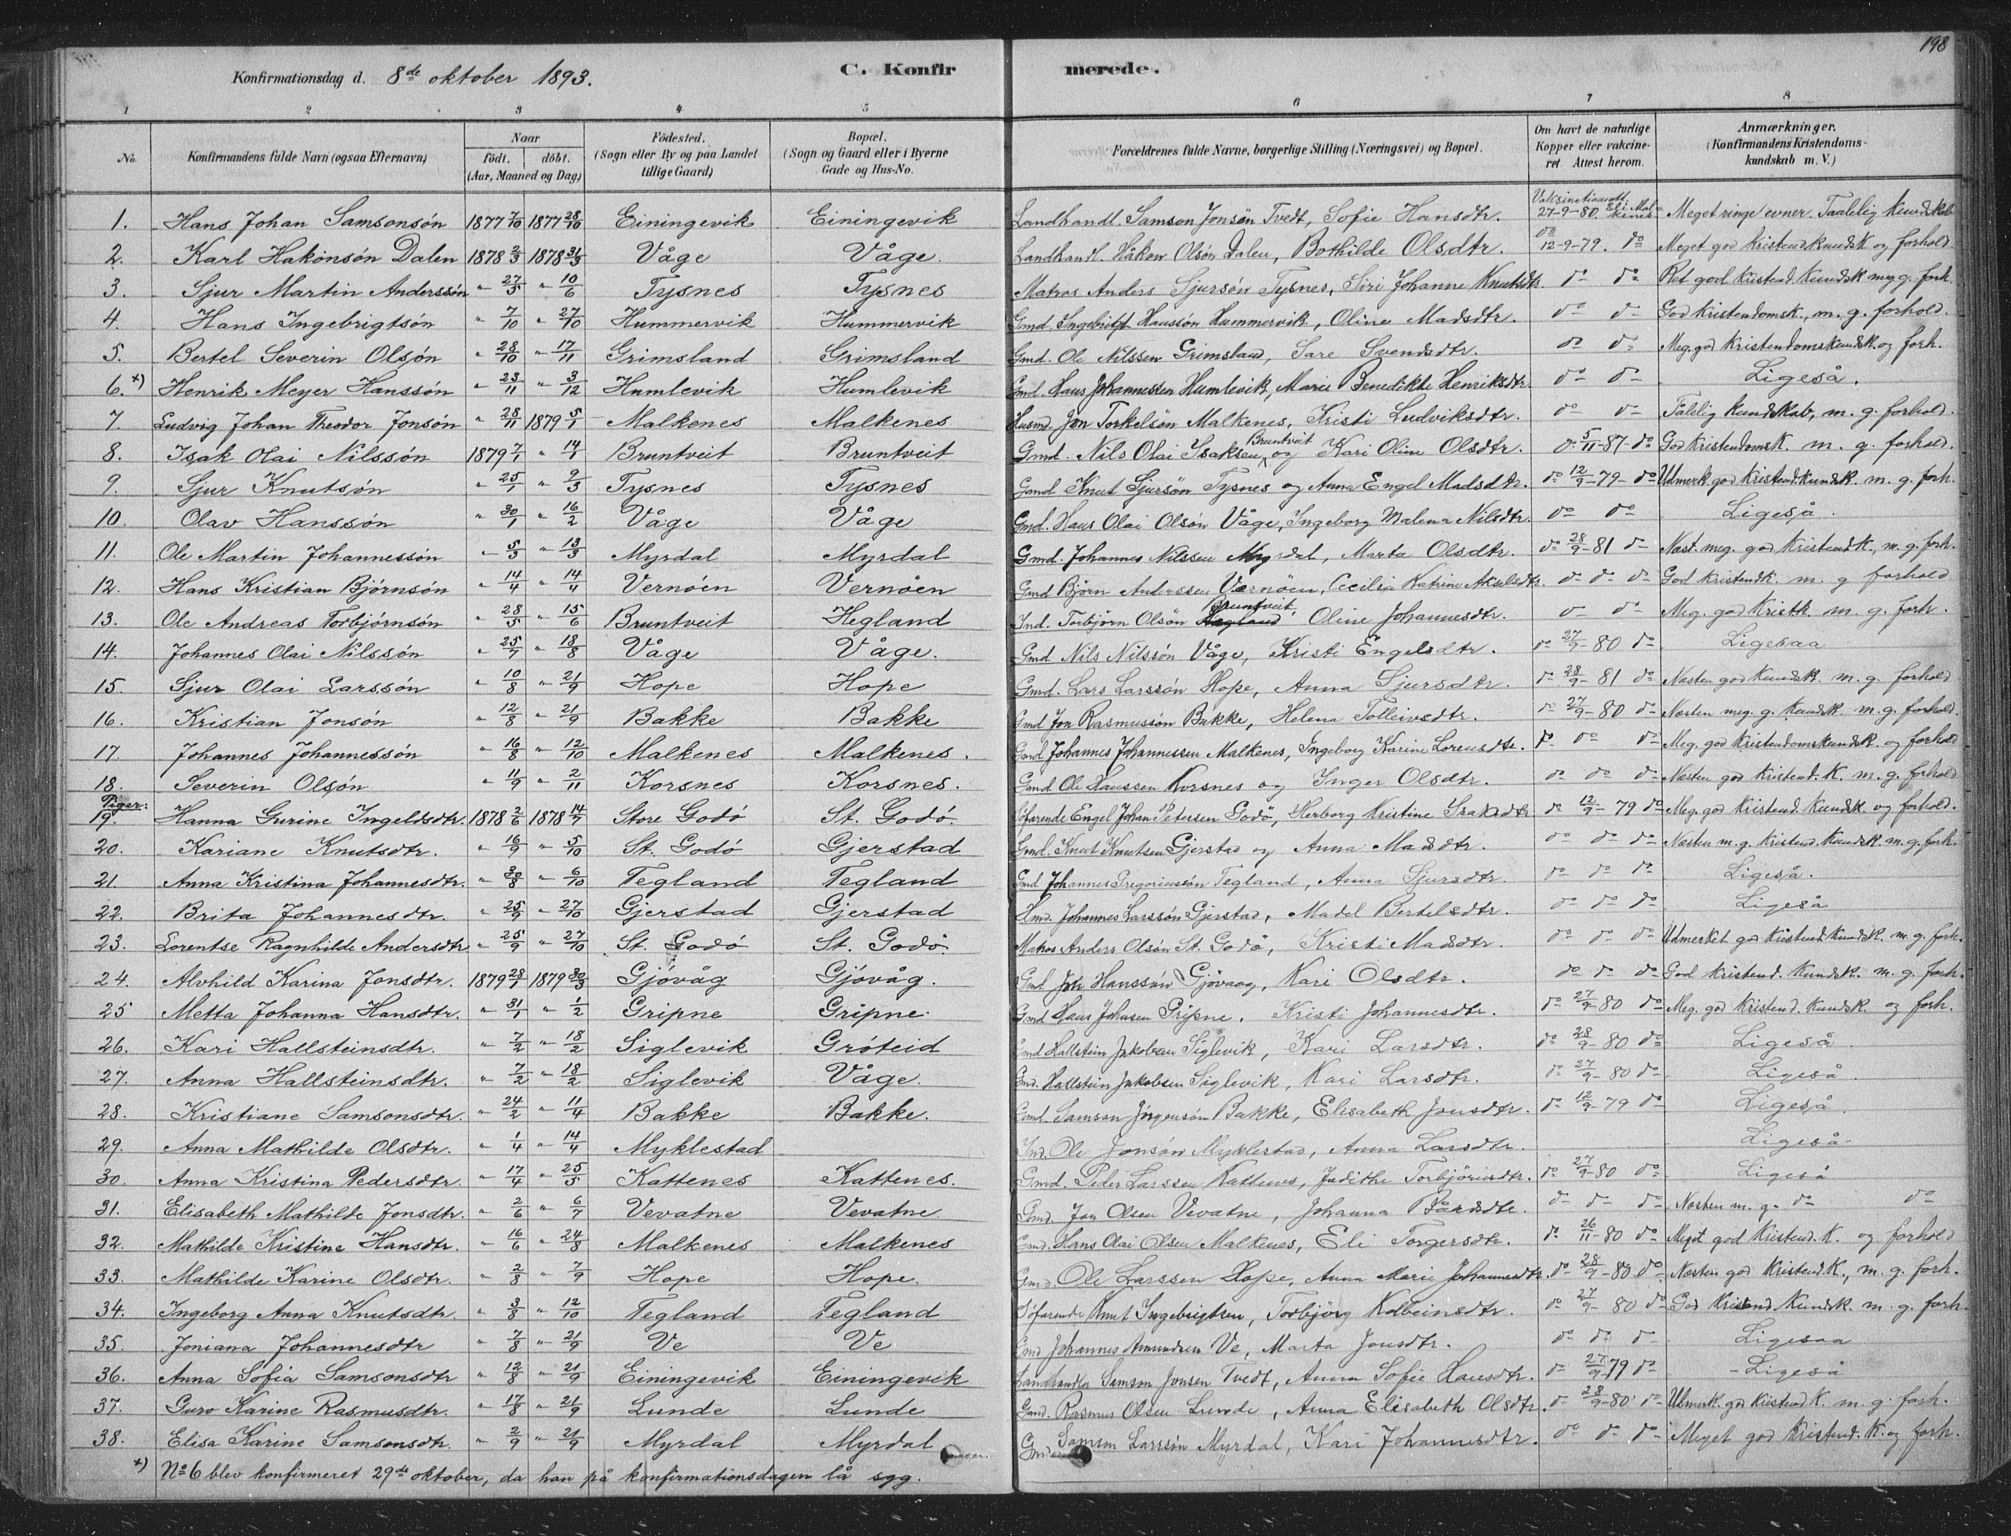 198
Konfirmationsdag d. 8de oktober 1893. C. Konfirmerede.
1 2 3 4 5 6 7 8
No. Konfirmandens fulde Navn (ogsaa Efternavn) Naar født. døbt. (Aar, Maaned og Dag) Fødested. (Sogn eller By og paa Landet tillige Gaard) Bopæl. (Sogn og Gaard eller i Byerne Gade og Hus-No. Forældrenes fulde Navne, borgerlige Stilling (Næringsvei) og Bopæl. Om havt de naturlige Kopper eller vakcineret. Attest herom. Anmærkninger. (Konfirmandens Kristendomskundskab m. V.)
1. Hans Johan Samsonsøn 1877 7/10 1877 28/10 Einingevik Einingevik Landhandl. Samson Jonsøn Tvedt, Sofie Hansdtr. 27-9-80 Meget ringe evner. Taalelig kundskab
2. Karl Hakonsøn Dalen 1878 2/3 1878 31/3 Våge Våge. Landhandl. Håkon Olsøn Dalen, Bothilde Olsdtr. do 12-9-79. do Meget god kristend.kundsk og forhold
3. Sjur Martin Anderssøn " 27/5 " 10/6 Tysnes Tysnes Matros Anders Sjursøn Tysnes, Siri Johanne Knutsdtr. do do Ret god kristend.kundsk meg. g. forh.
4. Hans Ingebrigtsøn " 7/10 " 27/10 Hummervik Hummervik Gmd. Ingebrigt Hanssøn Hummervik, Oline Madsdtr. do do God kristendomsk., m. g. forhold.
5. Bertel Severin Olsøn " 28/10 " 17/11 Grimsland Grimsland Gmd. Ole Nilssen Grimsland, Sare Svendsdtr. do do Meg. god kristendomskundsk. og forh.
6. x) Henrik Meyer Hanssøn " 23/11 " 3/12 Humlevik Humlevik Gmd. Hans Johannessen Humlevik, Marie Benedikte Henriksdtr. do do Ligeså.
7. Ludvig Johan Theodor Jonsøn " 28/11 1879 5/1 Malkenes Malkenes Husmd. Jon Torkelsøn Malkenes, Kristi Ludviksdtr. do do Tålelig kundskab, m. g. forhold.
8. Isak Olai Nilssøn 1879 7/1 " 14/1 Bruntveit Bruntveit Gmd. Nils Olai Isaksen Bruntveit og Kari Oline Olsdtr. do 5/11-87- do God kristendomsk. m. g. forhold.
9. Sjur Knutsøn " 25/1 " 9/3 Tysnes Tysnes Gmd Knut Sjursøn Tysnes og Anna Engel Madsdtr. do 12/9-79- do Udmerk. god kristend.kundsk. m. g. forh.
10. Olav Hanssøn " 30/1 " 16/2 Våge Våge Gmd. Hans Olai Olsøn Våge, Ingeborg Malena Nilsdtr. do do Ligeså.
11. Ole Martin Johannessøn " 5/3 " 13/3 Myrdal Myrdal Gmd. Johannes Nilssen Myrdal, Marta Olsdtr. do 28/9-81 do Næst. meg. god kristendk., m. g. forh.
12. Hans Kristian Bjørnsøn " 14/4 " 14/4 Vernøen Vernøen Gmd Bjørn Anderssen Værnøen, Cecilia Katrine Akselsdtr. do do do God kristendk. m. g forhold
13. Ole Andreas Torbjørnsøn " 28/5 " 15/6 Bruntveit Hegland Ind. Torbjørn Olsøn Bruntveit, Oline Johannesdtr. do do Meg. god Kristk. m. g. forh.
14. Johannes Olai Nilssøn " 25/7 " 18/8 Våge Våge. Gmd. Nils Nilssøn Våge, Kristi Engelsdtr. do 27/9-80 do Ligesaa
15. Sjur Olai Larssøn " 10/8 " 21/9 Hope Hope Gmd. Lars Larssøn Hope, Anna Sjursdtr. do 28/9-81 do Næsten god kundsk. m. g. forhold
16. Kristian Jonsøn " 12/8 " 21/9 Bakke Bakke Gmd Jon Rasmussøn Bakke, Helena Tolleivsdtr. do 27/9-80 do Næsten meg. g. kundsk. m. g. forhold.
17. Johannes Johannessøn " 16/8 " 12/10 Malkenes Malkenes. Gmd. Johannes Johannessen Malkenes, Ingeborg Karine Lorensdtr. do do do Meg. god kristendomskundsk. og forhold
18. Severin Olsøn " 11/9 " 2/11 Korsnes Korsnes. Gmd. Ole Hanssen Korsnes og Inger Olsdtr. do do do Næsten god kristend.K. m. g. forhold
Piger:
19. Hanna Gurine Ingeldsdtr. 1878 2/6 1878 14/7 Store Godø St. Godø. Søfarende Engel Johan Petersen Godø, Herborg Kristine Isaksdtr do 12/9-79 do Meg. god kristend.kundsk. og forhold.
20. Kariane Knutsdtr. " 16/9 " 5/10 St. Godø Gjerstad Gmd. Knut Knutsen Gjerstad og Anna Madsdtr. do do do Næsten m. g. kristend.kundsk. m. g. forh.
21. Anna Kristina Johannesdtr. " 30/8 " 6/10 Tegland Tegland Gmd Johannes Gregoriussøn Tegland, Anna Sjursdtr. do do do Ligeså.
22. Brita Johannesdtr. " 25/9 " 27/10 Gjerstad Gjerstad Hmd. Johannes Larssøn Gjerstad, Madel Bertelsdtr. do do do Ligeså
23. Lorentse Ragnhilde Andersdtr " 25/9 " 27/10 St. Godø St. Godø. Matros Anders Olsøn St. Godø, Kristi Madsdtr. do do do Udmerket god kristend.kundsk. m. g. forh.
24. Alvhild Karina Jonsdtr. 1879 28/1 1879 30/3 Gjøvåg Gjøvåg. Gmd Jon Hanssøn Gjøvaag, Kari Olsdtr. do do do God kristend.kundsk. m. g. forh.
25 Metta Johanna Hansdtr. " 31/1 " 1/2 Gripne Gripne. Gmd Hans Johnsen Gripne, Kristi Johannesdtr. do 27/9-80 do Meg. god kristend.kundsk. og forh.
26. Kari Hallsteinsdtr. " 7/2 " 18/2 Siglevik Grøteid Gmd Hallstein Jakobsen Siglevik, Kari Larsdtr. do 28/9-80 do Ligeså.
27. Anna Hallsteinsdtr. " 7/2 " 18/2 Siglevik Våge. Gmd. Hallstein Jakobsen Siglevik, Kari Larsdtr. do 27/9-80 do Ligeså.
28. Kristiane Samsonsdtr. " 24/2 " 11/4 Bakke Bakke. Gmd Samson Jørgensøn Bakke, Elisabeth Jonsdtr. do 12/9 79 do Ligeså.
29. Anna Mathilde Olsdtr. " 1/4 " 14/4 Myklestad Ind. Ole Jonsøn Myklestad, Anna Larsdtr. Ligeså.
30. Anna Kristina Pedersdtr. " 17/4 " 25/5 Kattenes Kattenes. Gmd. Peder Larssen Kattenes, Judithe Torbjørnsdtr. do 27/9-80 do Ligeså
31. Elisabeth Mathilde Jonsdtr. " 2/6 " 6/7 Vevatne Vevatne. Gmd. Jon Olsen Vevatne, Johanna Bårdsdtr. do do do Næsten m. g. do do
32. Mathilde Kristine Hansdtr. " 16/6 " 24/8 Malkenes Malkenes Gmd. Hans Olai Olsen Malkenes, Eli Torgersdtr. do 26/11-80 do Meget god kristend.K. og forhold
33. Mathilde Karine Olsdtr. " 2/8 " 7/9 Hope Hope. Gmd. Ole Larssen Hope, Anna Marie Johannesdtr. do 28/9-80 do Næsten god kristend.K., m. g. forh.
34. Ingeborg Anna Knutsdtr. " 3/8 " 12/10 Tegland Tegland Søfarende Knut Ingebrigtsen, Torbjørg Kolbeinsdtr. do 27/9-80 do God Kristend.kundsk. m. g. forh.
35. Joniana Johannesdtr " 7/8 " 21/9 Ve Ve Gmd Johannes Amundsen Ve, Marta Jonsdtr. do do do Ligesaa
36. Anna Sofia Samsonsdtr " 12/8 " 21/9 Einingevik Einingevik Landhandler Samson Jonsen Tvedt, Anna Sofie Hansdtr. do 27/9 79 do Ligeså
37. Guro Karine Rasmusdtr. " 17/8 " 21/9 Lunde Lunde Gmd. Rasmus Olsen Lunde, Anna Elisabeth Olsdtr. do 28/9-80 do Udmerk. god kristend.K. m. g. forh.
38. Elisa Karine Samsonsdtr. " 2/9 " 21/9 Myrdal Myrdal Gmd Samson Larssøn Myrdal, Kari Johannesdtr. do do do Meget god kristend.K. og forh.
x) No 6 blev konfirmeret 29de oktober, da han på konfirmationsdagen lå syg.